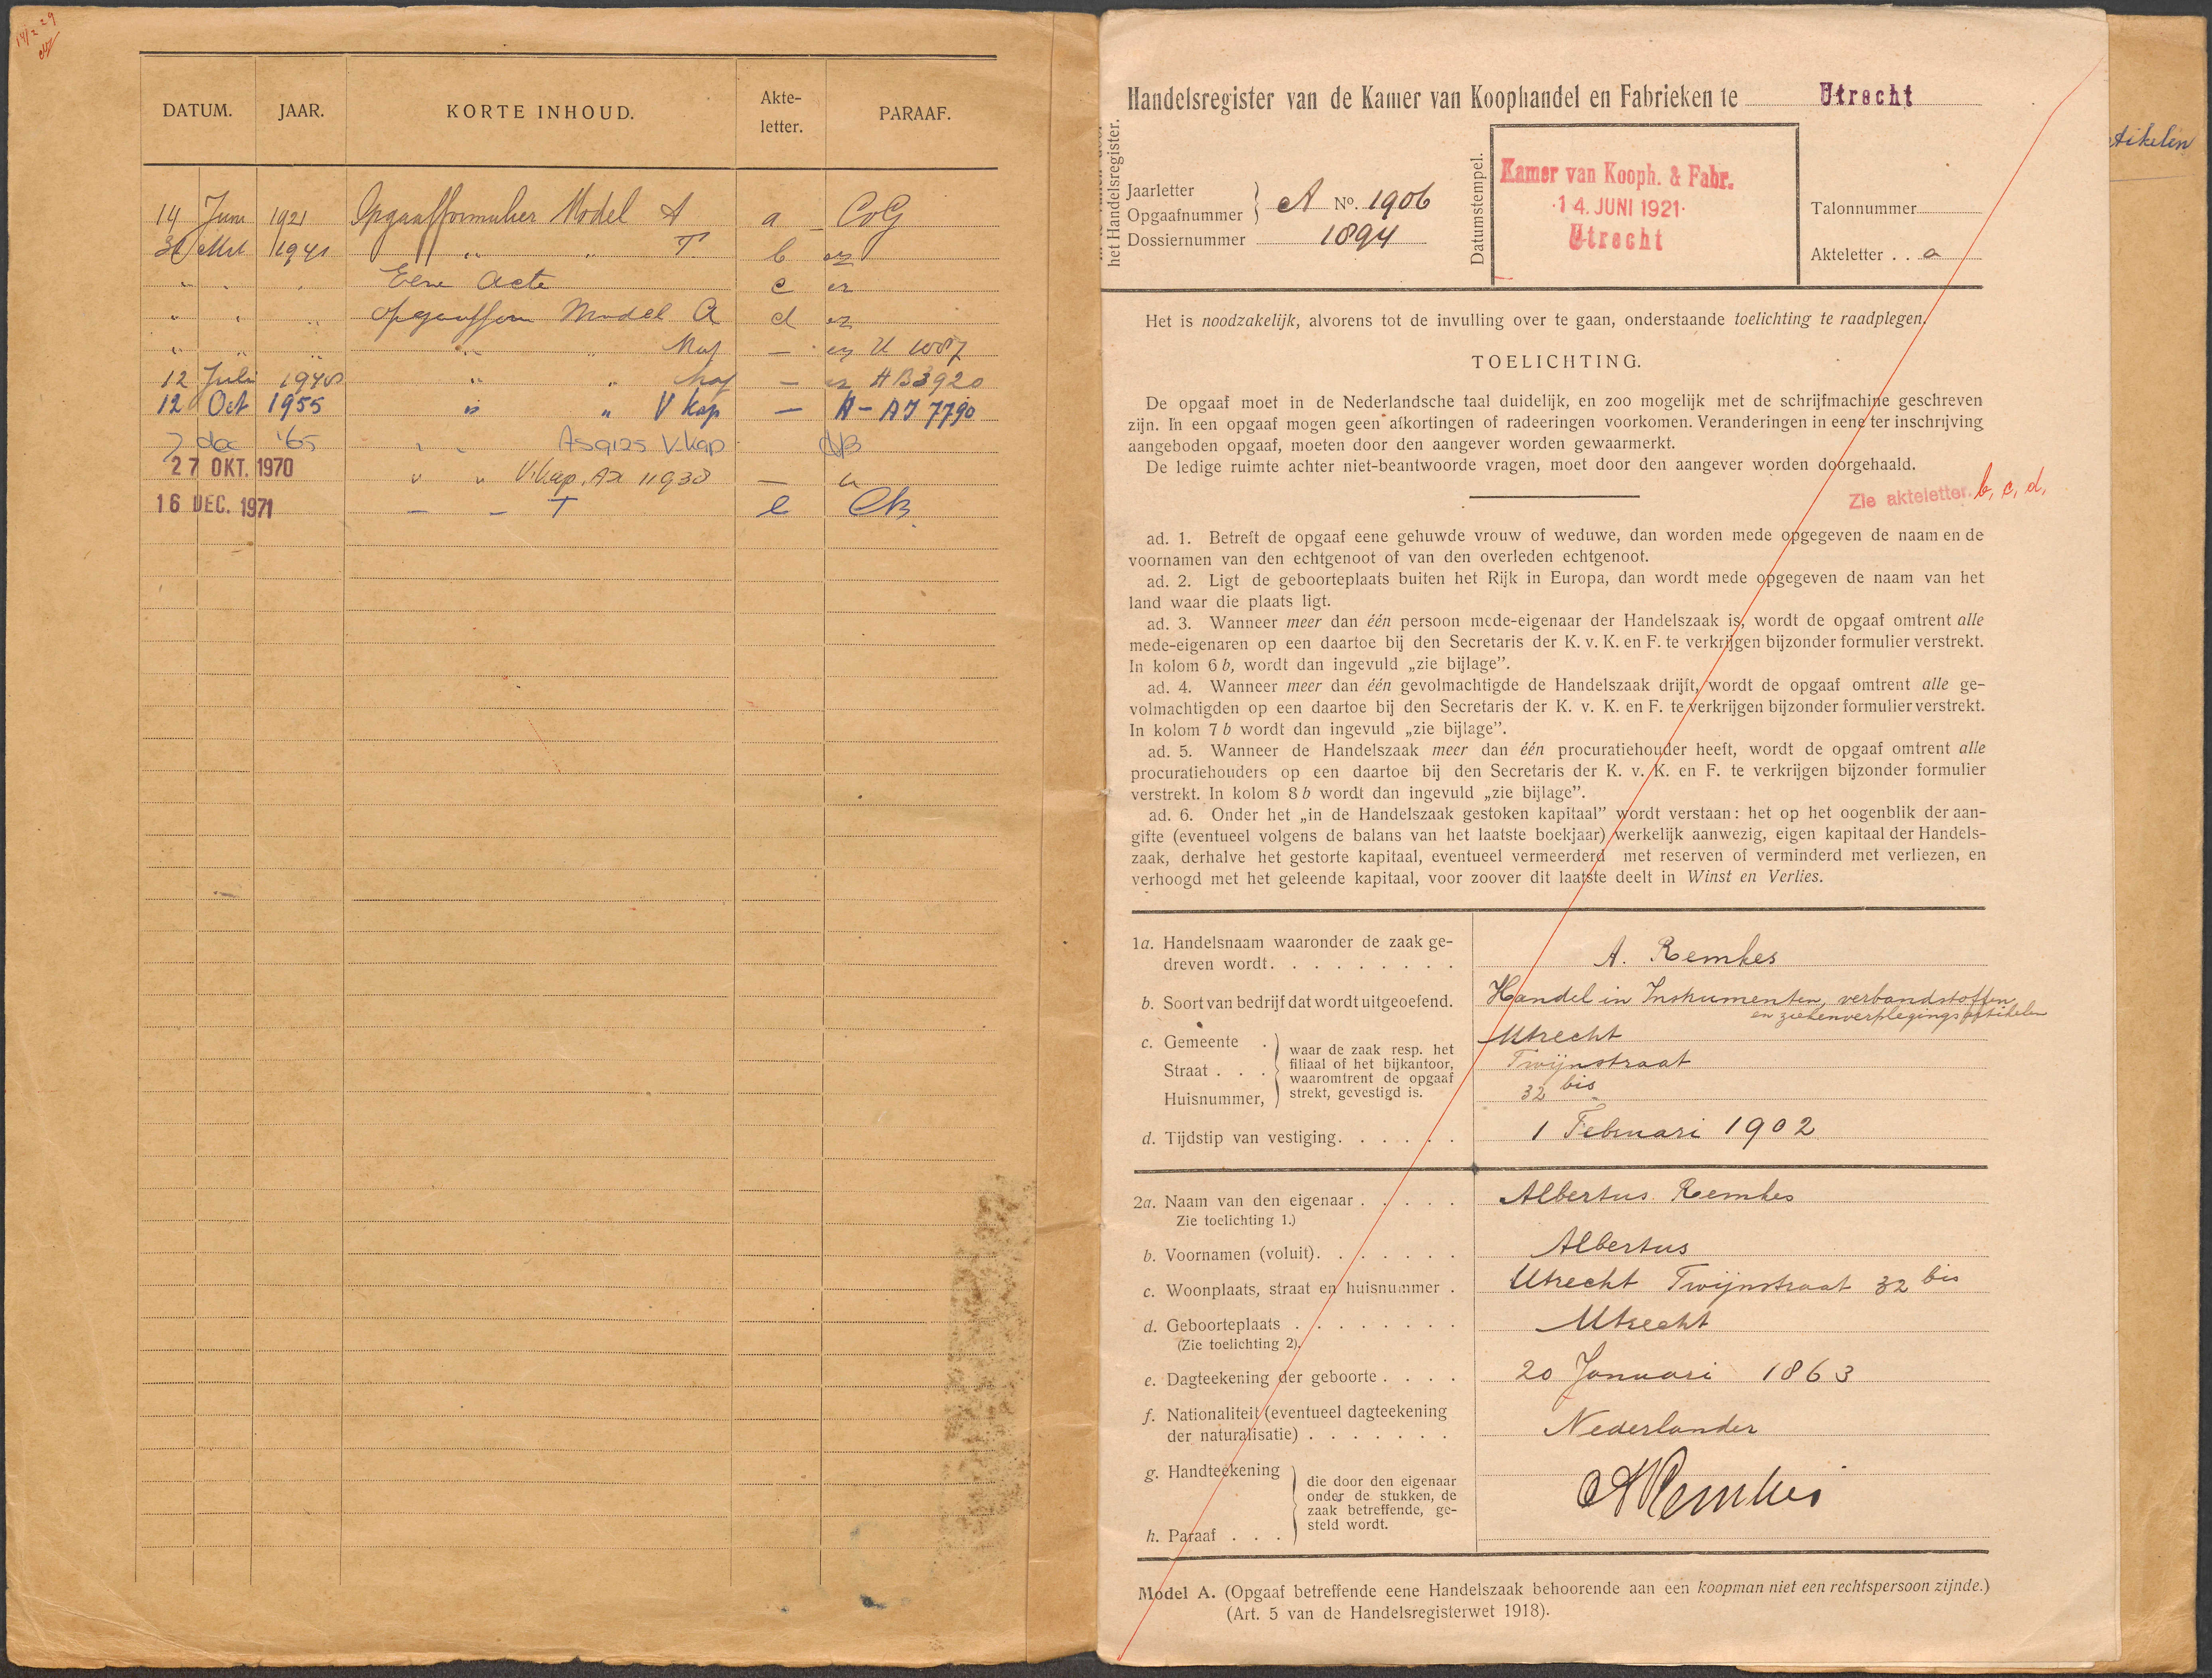 14/2 29
DATUM. JAAR. KORTE INHOUD. Akte-letter. PARAAF.
14 Juni 1921 Opgaafformulier Model A a CvG
31 Mrt 1941 " " T b
" " " Eene Acte c
" " " opgaafform Model A d
" " " " " Maf —
12 Juli 1940 " " Maf — HB3920
12 Oct 1955 " " V kap — A - AJ 7790
7 dec '65 " " As9125 V.kap
27 OKT. 1970 " " V.kap. Ax 11938 — "
16 DEC. 1971 — — T e
Handelsregister van de Kamer van Koophandel en Fabrieken te Utrecht
het Handelsregister.
Jaarletter
Opgaafnummer
A No. 1906
Dossiernummer 1894
Datumstempel.
Kamer van Kooph. & Fabr.
14. JUNI 1921
Utrecht
Talonnummer
Akteletter . . a
Het is noodzakelijk, alvorens tot de invulling over te gaan, onderstaande toelichting te raadplegen.
TOELICHTING.
De opgaaf moet in de Nederlandsche taal duidelijk, en zoo mogelijk met de schrijfmachine geschreven
zijn. In een opgaaf mogen geen afkortingen of radeeringen voorkomen. Veranderingen in eene ter inschrijving
aangeboden opgaaf, moeten door den aangever worden gewaarmerkt.
De ledige ruimte achter niet-beantwoorde vragen, moet door den aangever worden doorgehaald.
Zie akteletter b, c, d,
ad. 1. Betreft de opgaaf eene gehuwde vrouw of weduwe, dan worden mede opgegeven de naam en de
voornamen van den echtgenoot of van den overleden echtgenoot.
ad. 2. Ligt de geboorteplaats buiten het Rijk in Europa, dan wordt mede opgegeven de naam van het
land waar die plaats ligt.
ad. 3. Wanneer meer dan één persoon mede-eigenaar der Handelszaak is, wordt de opgaaf omtrent alle
mede-eigenaren op een daartoe bij den Secretaris der K. v. K. en F. te verkrijgen bijzonder formulier verstrekt.
In kolom 6 b, wordt dan ingevuld „zie bijlage”.
ad. 4. Wanneer meer dan één gevolmachtigde de Handelszaak drijft, wordt de opgaaf omtrent alle ge-
volmachtigden op een daartoe bij den Secretaris der K. v. K. en F. te verkrijgen bijzonder formulier verstrekt.
In kolom 7 b wordt dan ingevuld „zie bijlage”.
ad. 5. Wanneer de Handelszaak meer dan één procuratiehouder heeft, wordt de opgaaf omtrent alle
procuratiehouders op een daartoe bij den Secretaris der K. v. K. en F. te verkrijgen bijzonder formulier
verstrekt. In kolom 8 b wordt dan ingevuld „zie bijlage”.
ad. 6. Onder het „in de Handelszaak gestoken kapitaal” wordt verstaan: het op het oogenblik der aan-
gifte (eventueel volgens de balans van het laatste boekjaar) werkelijk aanwezig, eigen kapitaal der Handels-
zaak, derhalve het gestorte kapitaal, eventueel vermeerderd met reserven of verminderd met verliezen, en
verhoogd met het geleende kapitaal, voor zoover dit laatste deelt in Winst en Verlies.
1a. Handelsnaam waaronder de zaak ge-
dreven wordt. A. Remkes
b. Soort van bedrijf dat wordt uitgeoefend. Handel in Instrumenten, verbandstoffen
en ziekenverplegingsartikelen
c. Gemeente . Utrecht
Straat . . . Twijnstraat
Huisnummer, 32 bis
waar de zaak resp. het
filiaal of het bijkantoor,
waaromtrent de opgaaf
strekt, gevestigd is.
d. Tijdstip van vestiging. 1 Februari 1902
2a. Naam van den eigenaar . Albertus Remkes
Zie toelichting 1.)
b. Voornamen (voluit). Albertus
c. Woonplaats, straat en huisnummer . Utrecht Twijnstraat 32 bis
d. Geboorteplaats . Utrecht
(Zie toelichting 2).
e. Dagteekening der geboorte . 20 Januari 1863
f. Nationaliteit (eventueel dagteekening
der naturalisatie) . Nederlander
g. Handteekening
die door den eigenaar
onder de stukken, de
zaak betreffende, ge-
steld wordt.
ARemkes
h. Paraaf . . .
Model A. (Opgaaf betreffende eene Handelszaak behoorende aan een koopman niet een rechtspersoon zijnde.)
(Art. 5 van de Handelsregisterwet 1918).
tikelen